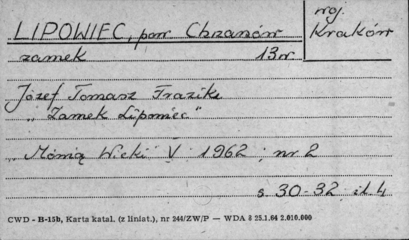 LIPOWIEC, pow. Chrzanów
woj.
Kraków
zamek 13 w.
Józef Tomasz Frazik
"Zamek Lipowiec"
"Mówią Wieki" V 1962, nr 2
s. 30-32 il. 4
CWD - B-15b, Karta katal. (z liniat.), nr 244/ZW/P — WDA 8 25.1.64 2.010.000